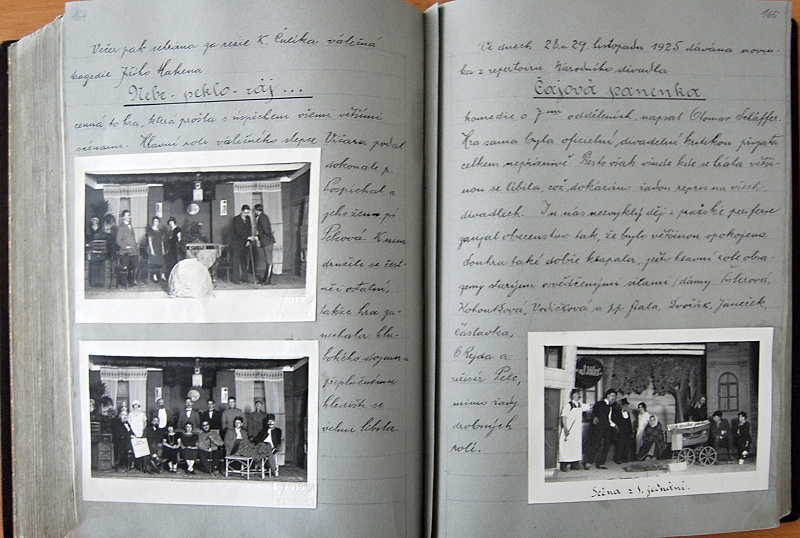 164
Večer pak sehrána za režie K. Čulíka válečná
tragedie Jiřího Mahena
Nebe - peklo - ráj ...
cenná to hra, která prošla s úspěchem všemi většími
scénami. Hlavní roli válečného slepce Vičara podal
dokonale p.
Pospíchal a
jeho ženu pí
Peková. K nim
družili se žest-
ně i ostatní,
takže hra za-
nechala hlu-
bokého dojmu a
přeplněnému
hledišti se
velmi líbila.
165
Ve dnech 28. a 29. listopadu 1925 dávána novin-
ka z repertoiru Národního divadla
Čajová panenka
komedie o 7mi odděleních, napsal Otomar Schäffer.
Hra sama byla oficielní divadelní kritikou přijata
celkem nepříznivě. Přesto však všude kde se hrála větši-
nou se líbila, což dokázáno řadou repris na všech
divadlech. I u nás nezvyklý děj z pražské periferie
zaujal obecenstvo tak, že bylo většinou spokojeno.
Souhra také dobře klapala, ježto hlavní role obsa-
zeny starými osvědčenými silami /dámy
Kohoutková, Vodičková a pp. Fiala, Dvořák, Janeček,
Částavka,
Chejda a
režisér Pelc,
mimo řady
drobných
rolí.
Scéna z 1. jednání.